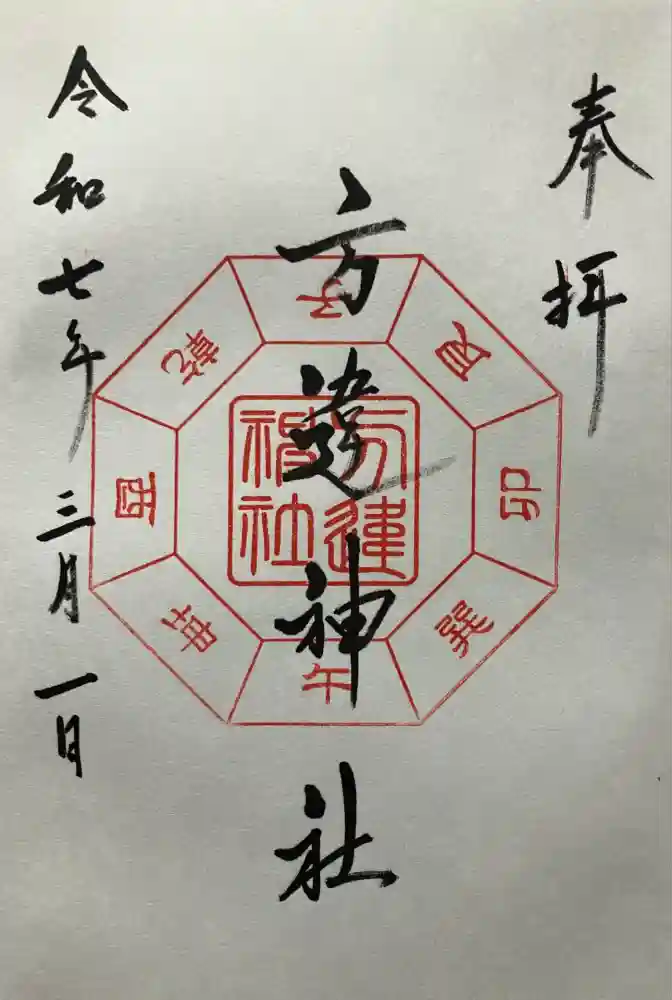 奉拝
方違神社
令和七年三月一日
子
艮
卯
巽
午
坤
酉
乾
方違
神社